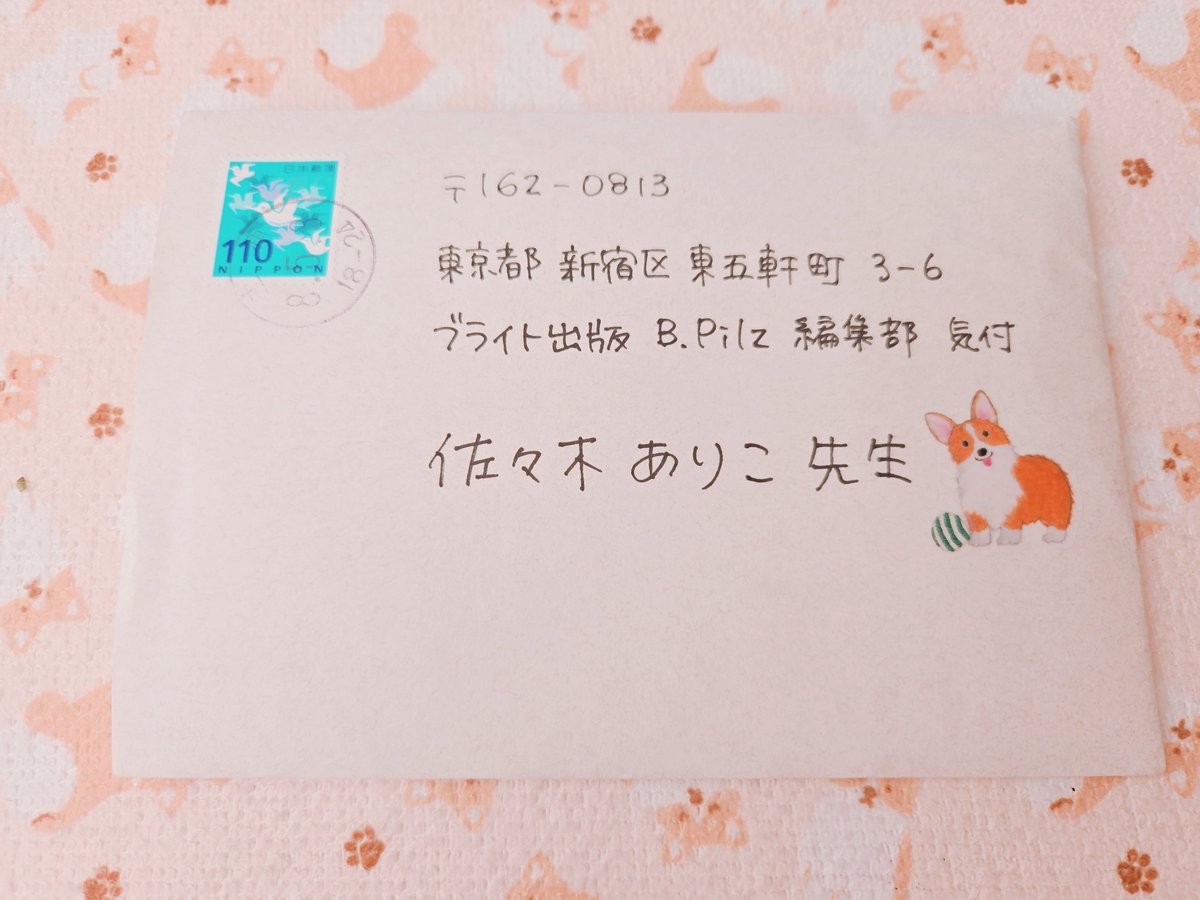 日本郵便
110
NIPPON
〒162-0813
東京都 新宿区 東五軒町 3-6
ブライト出版 B.Pilz 編集部 気付
佐々木 ありこ 先生